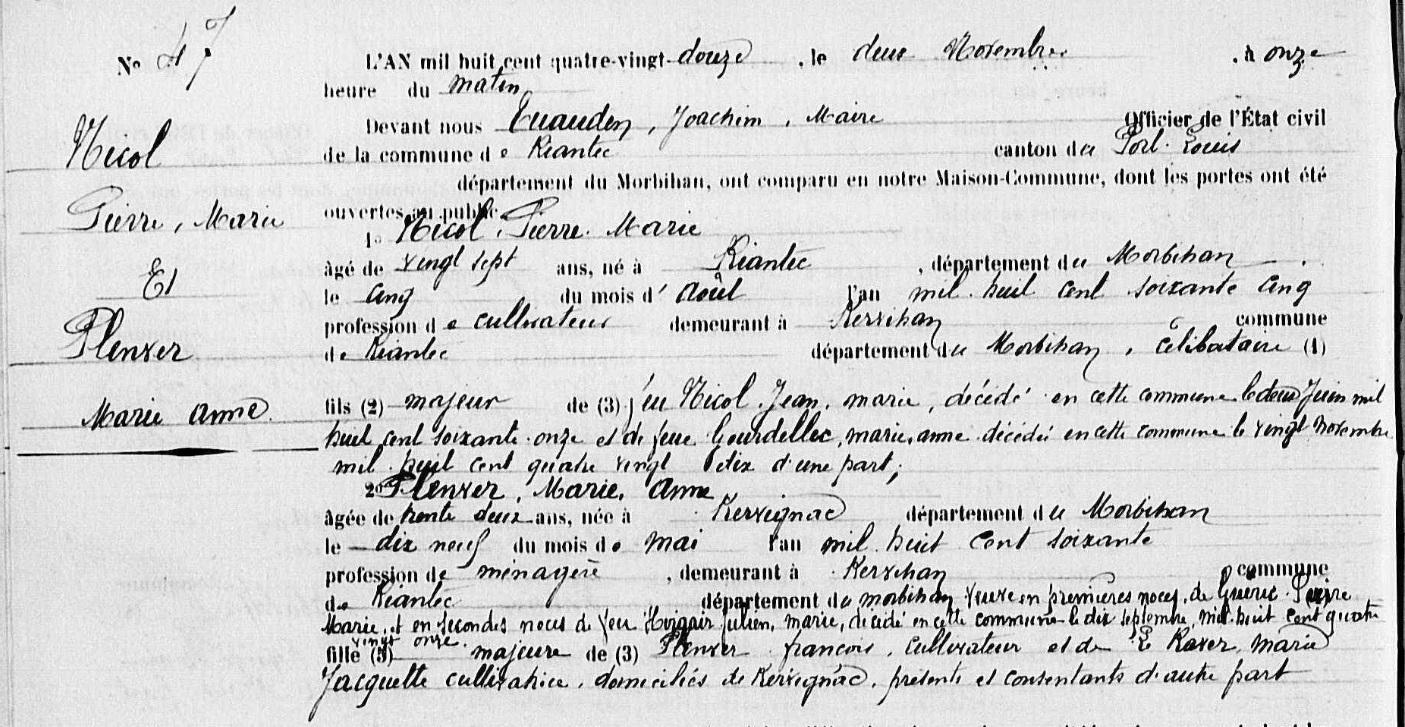 No 47
L'AN mil huit cent quatre-vingt-douze, le deux Novembre, à onze
heure du matin
Devant nous Tuauden, Joachim, Maire Officier de l'État civil
de la commune de Riantec canton du Port-Louis
département du Morbihan, ont comparu en notre Maison-Commune, dont les portes ont été
ouvertes au public
Nicol
Pierre, Marie
Et
Plenver
Marie anne.
1o Nicol, Pierre Marie
âgé de vingt sept ans, né à Riantec, département du Morbihan
le cinq du mois d'août l'an mil huit cent soixante cinq
profession de cultivateur demeurant à Kervihan commune
de Riantec département du Morbihan, célibataire (1)
fils (2) majeur de (3) feu Nicol Jean, marie, décédé en cette commune le deux Juin mil
huit cent soixante onze et de feue Gourdellec, marie, anne décédée en cette commune le vingt novembre
mil huit cent quatre vingt dix d'une part;
2o Plenver, Marie, Anne
âgée de trente deux ans, née à Kervignac département du Morbihan
le dix neuf du mois de mai l'an mil huit cent soixante
profession de ménagère, demeurant à Kervihan commune
de Riantec département du morbihan veuve en premières noces de Guéric Pierre
Marie, et en secondes noces de feu Julien, marie, décédé en cette commune le dix septembre, mil huit cent quatre
vingt onze
fille (3) majeure de (3) Plenver francois, cultivateur et de Le Raver marie
Jacquette cultivatrice, domiciliés de Kervignac, présents et consentants d'autre part